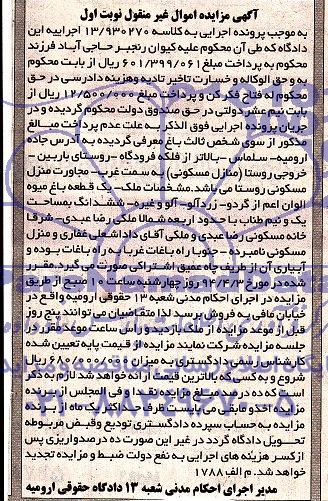 آگهی مزایده اموال غیر منقول نوبت اول
به موجب پرونده اجرایی به کلاسه ۱۳/۹۳۰۲۷۰ اجراییه این
دادگاه که طی آن محکوم علیه کیوان رنجبر حاجی آباد فرزند
محکوم به پرداخت مبلغ ۶۰۱/۳۹۹/۰۶۱ ریال از بابت محکوم
به و حق الوکاله و خسارت تاخیر تادیه وهزینه دادرسی در حق
محکوم له فتاح فکر کن و پرداخت مبلغ ۱۲/۵۰۰/۰۰۰ ریال از
بابت نیم عشر دولتی در حق صندوق دولت محکوم گردیده و در
جریان پرونده اجرایی فوق الذکر به علت عدم پرداخت مبالغ
مذکور از سوی شخص ثالث باغ معرفی گردیده به آدرس جاده
ارومیه- سلماس -بالاتر از فلکه فرودگاه -روستای باربین -
خروجی روستا (منازل مسکونی) به سمت غرب- مجاورت منزل
مسکونی روستا می باشد. مشخصات ملک- یک قطعه باغ میوه
الوان اعم از گردو- زردآلو- آلو و غیره- ششدانگ بمساحت
یک و نیم طناب با حدود اربعه شمالا ملکی رضا عبدی- شرقا
خانه مسکونی رضا عبدی و ملکی آقای داداشعلی غفاری و منزل
مسکونی نامبرده - جنوبا راه باغات غربا به راه باغات بوده و
آبیاری آن از طریف چاه عمیق اشتراکی صورت می گیرد. مقرر
شده در مورخ ۹۴/۴/۳ روز چهارشنبه ساعت ۱۰ صبح از طریق
مزایده در اجرای احکام مدنی شعبه ۱۳ حقوقی ارومیه واقع در
خیابان مافی به فروش برسد لذا متقاضیان می توانند پنج روز
قبل از موعد مزایده از ملک بازدید و راس ساعت موعد مقرر در
جلسه مزایده شرکت نمایند مزایده از قیمت پایه تعیین شده
کارشناس رسمی دادگستری به میزان ۶۸۰/۰۰۰/۰۰۰ ریال
شروع و به کسی که بالاترین قیمت ارائه خواهد شد لازم به ذکر
است که ده در صد مبلغ مزایده نقدا و فی المجلس از برنده
مزایده اخذو مابقی می بایست ظرف حداکثر یک ماه از برنده
مزایده به حساب سپرده دادگستری تودیع وقبض مربوطه
تحویل دادگاه گردد در غیر این صورت ده در صدواریزی پس
از کسر هزینه های اجرایی به نفع دولت ضبط و مزایده تجدید
خواهد شد. م الف ۱۷۸۸
مدیر اجرای احکام مدنی شعبه ۱۳ دادگاه حقوقی ارومیه